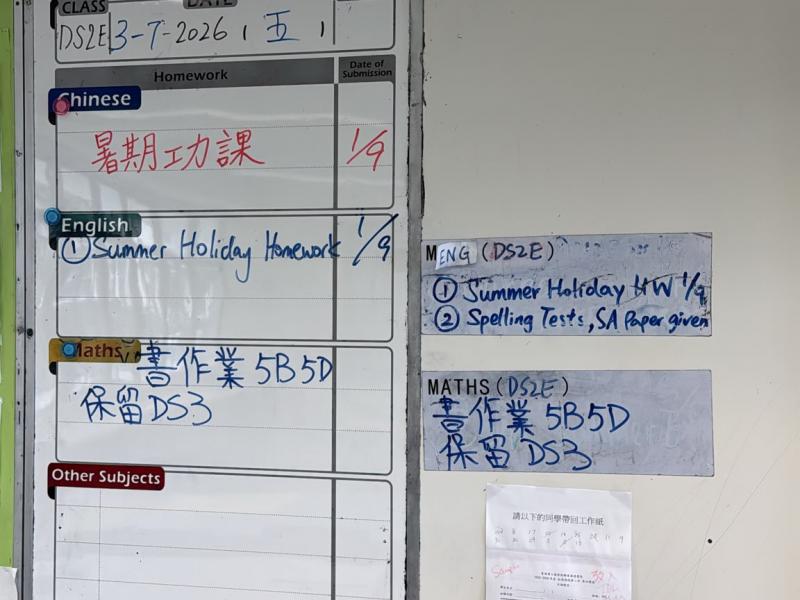 CLASS
DATE
DS2E 3-7-2026 (五)
Homework
Date of Submission
Chinese
暑期功課 1/9
English
① Summer Holiday Homework 1/9
Maths
書作業 5B5D
保留DS3
Other Subjects
MENG (DS2E)
① Summer Holiday HW 1/9
② Spelling Tests, SA Paper given
MATHS (DS2E)
書作業 5B5D
保留 DS3
請以下的同學帶回工作紙